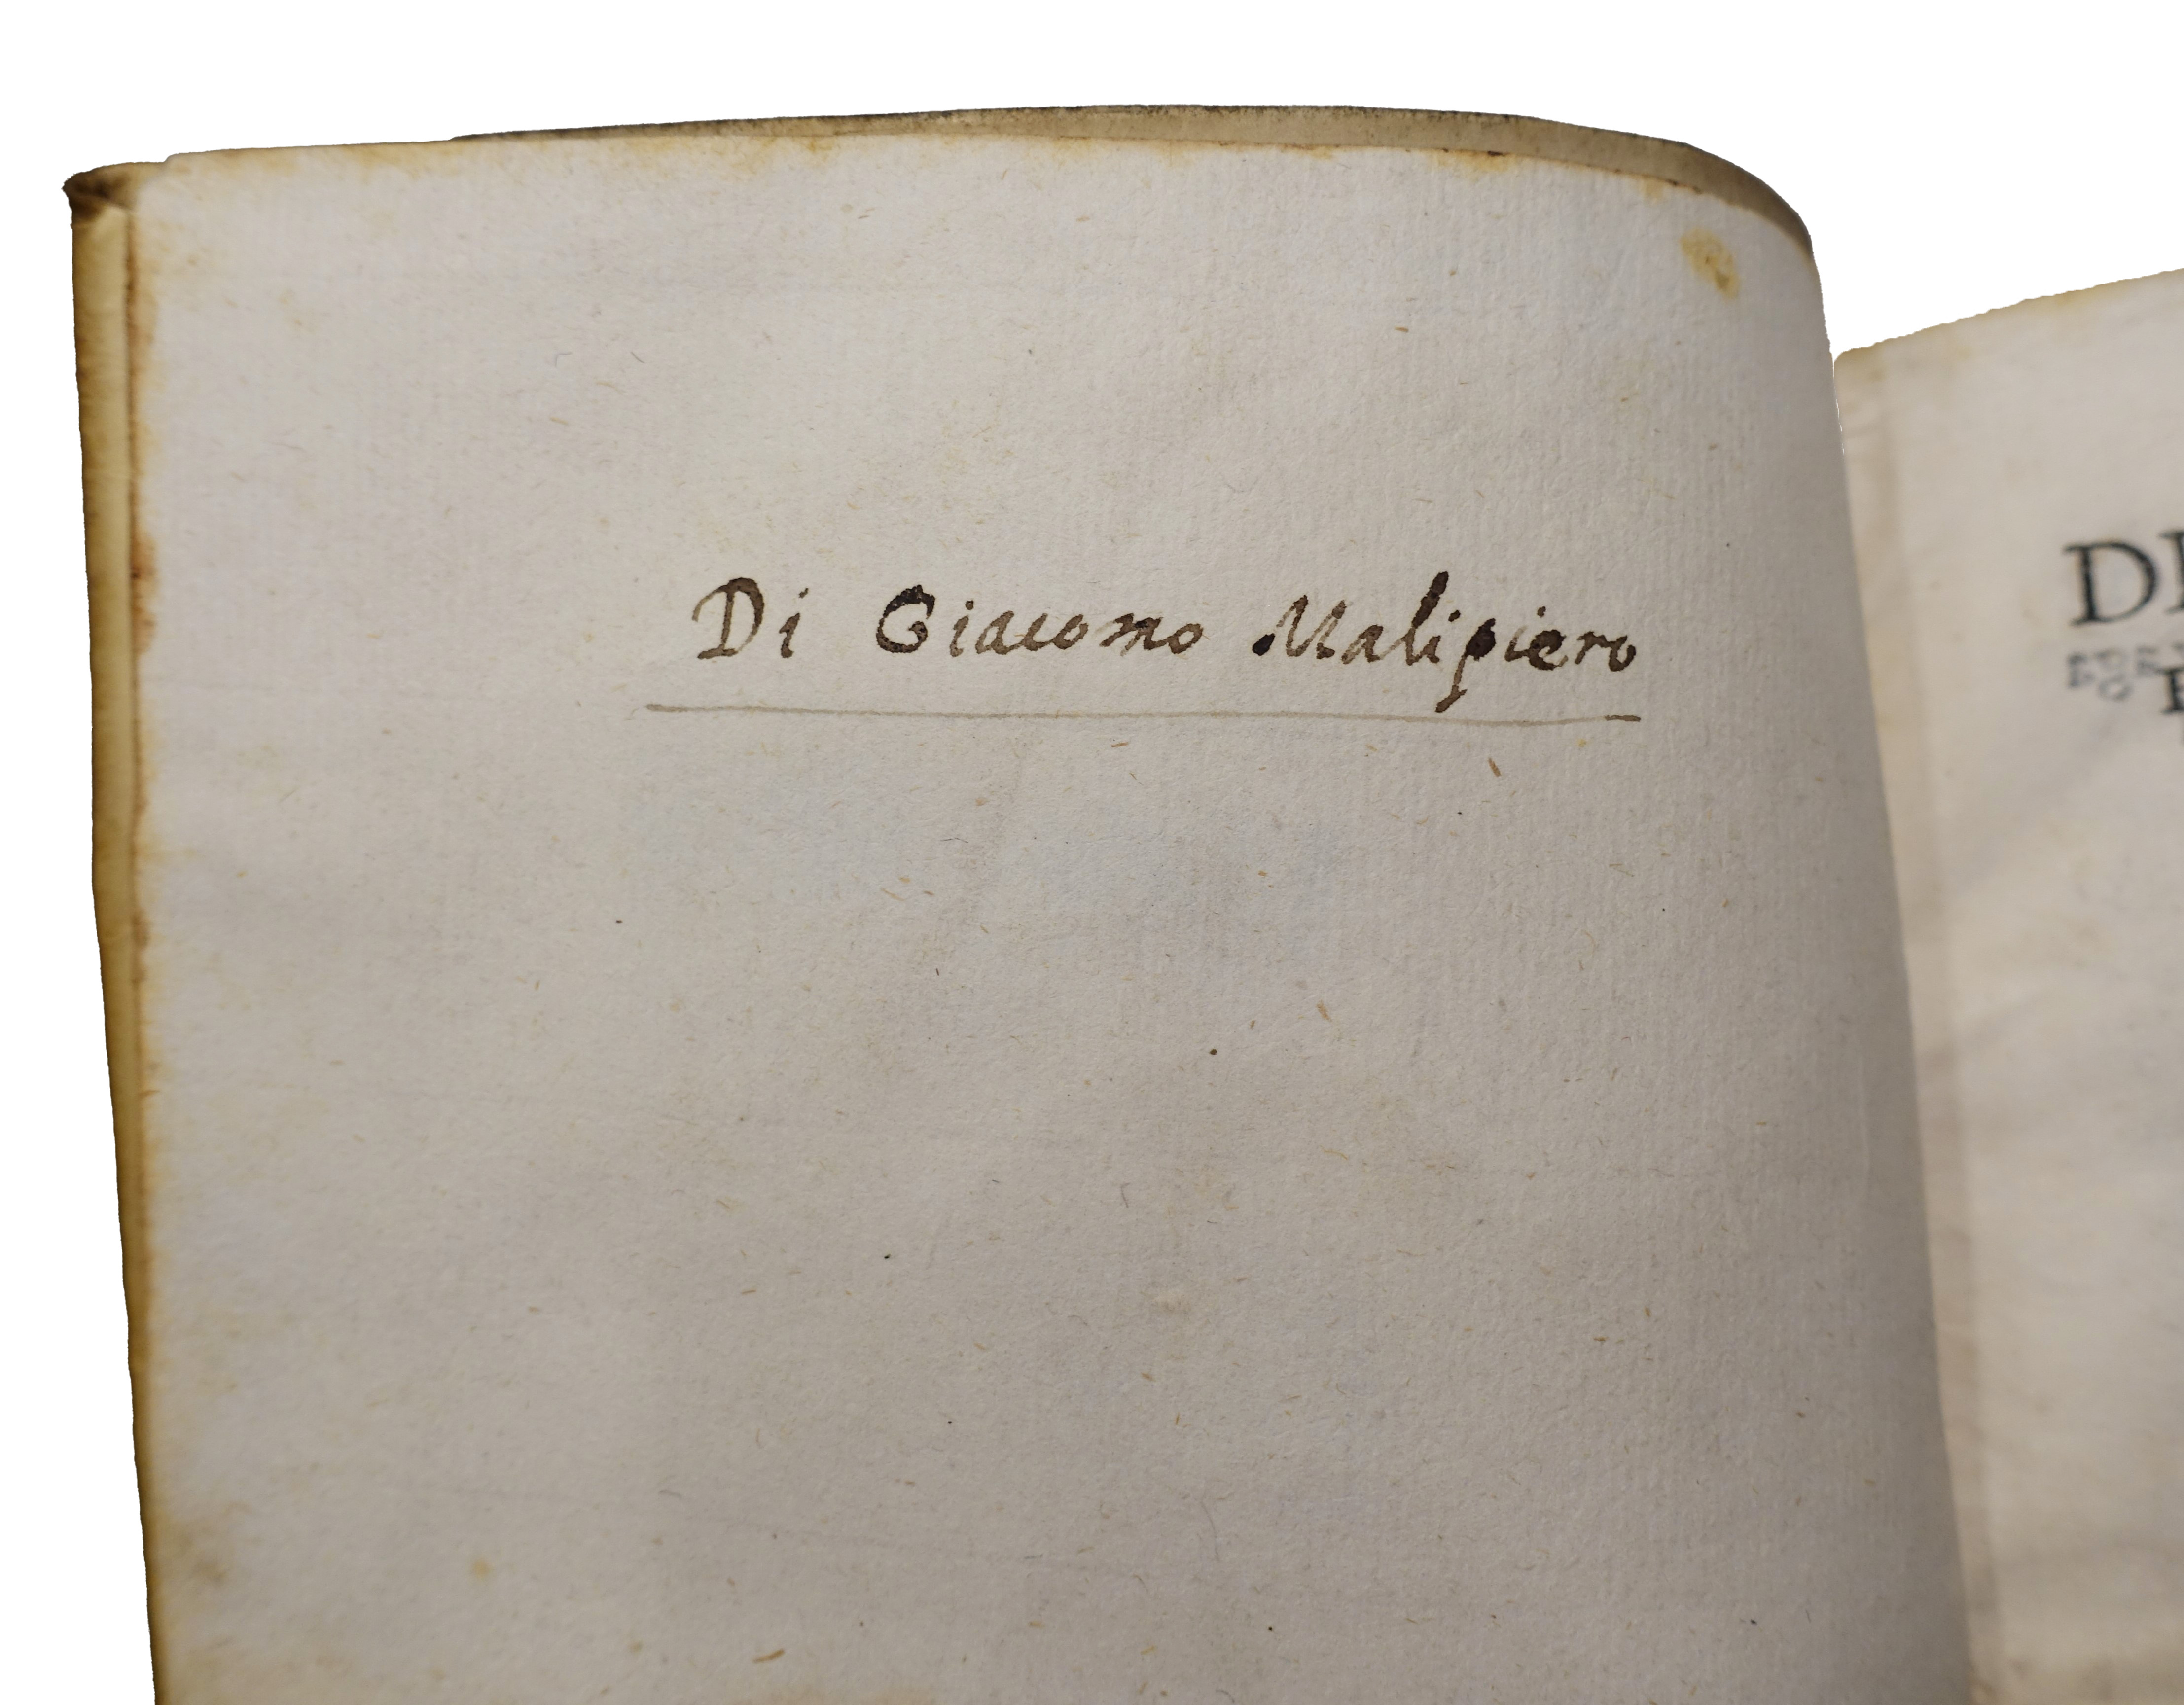 Di Giacomo Malipiero